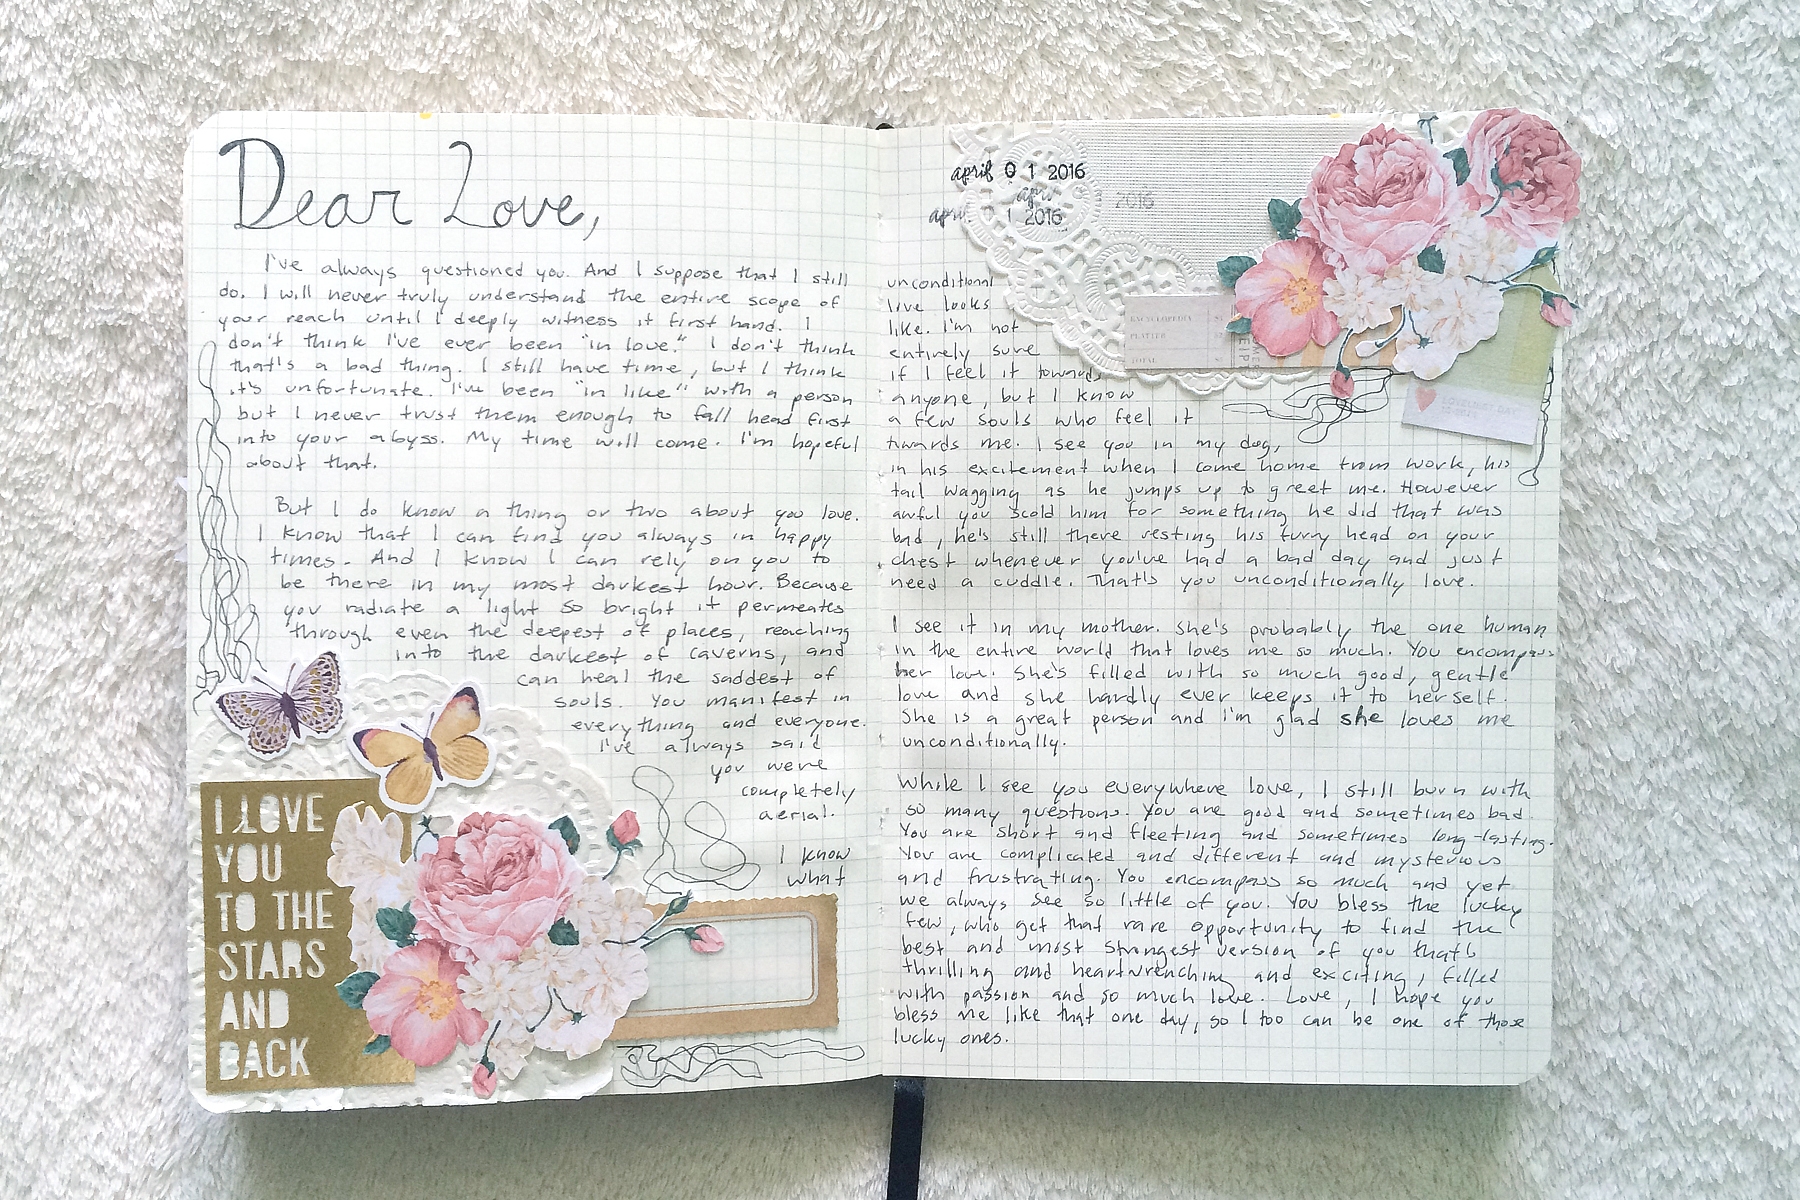 Dear Love,
I've always questioned you. And I suppose that I still
do. I will never truly understand the entire scope of
your reach until I deeply witness it first hand. I
don't think I've ever been "in love." I don't think
that's a bad thing. I still have time, but I think
it's unfortunate. I've been "in like" with a person
but I never trust them enough to fall head first
into your abyss. My time will come. I'm hopeful
about that.
But I do know a thing or two about you love.
I know that I can find you always in happy
times. And I know I can rely on you to
be there in my most darkest hour. Because
you radiate a light so bright it permeates
through even the deepest of places, reaching
into the darkest of caverns, and
can heal the saddest of
souls. You manifest in
everything and everyone.
I've always said
you were
completely
aerial.
I know
what
I LOVE
YOU
TO THE
STARS
AND
BACK
april 0 1 2016
april
2016
april 1 2016
unconditional
live looks
like. I'm not
entirely sure
if I feel it towards
anyone, but I know
a few souls who feel it
twards me. I see you in my dog,
in his excitement when I come home from work, his
tail wagging as he jumps up to greet me. However
awful you scold him for something he did that was
bad, he's still there resting his furry head on your
chest whenever you've had a bad day and just
need a cuddle. That's you unconditionally love.
I see it in my mother. She's probably the one human
in the entire world that loves me so much. You encompass
her love. She's filled with so much good, gentle
love and she hardly ever keeps it to herself.
She is a great person and i'm glad she loves me
unconditionally.
While I see you everywhere love, I still burn with
so many questions. You are good and sometimes bad.
You are short and fleeting and sometimes long-lasting.
You are complicated and different and mysterious
and frustrating. You encompass so much and yet
we always see so little of you. You bless the lucky
few, who get that rare opportunity to find the
best and most strangest version of you that's
thrilling and heartwrenching and exciting, filled
with passion and so much love. Love, I hope you
bless me like that one day, so I too can be one of those
lucky ones.
ENCYCLOPEDIA
PLATTER
TOTAL